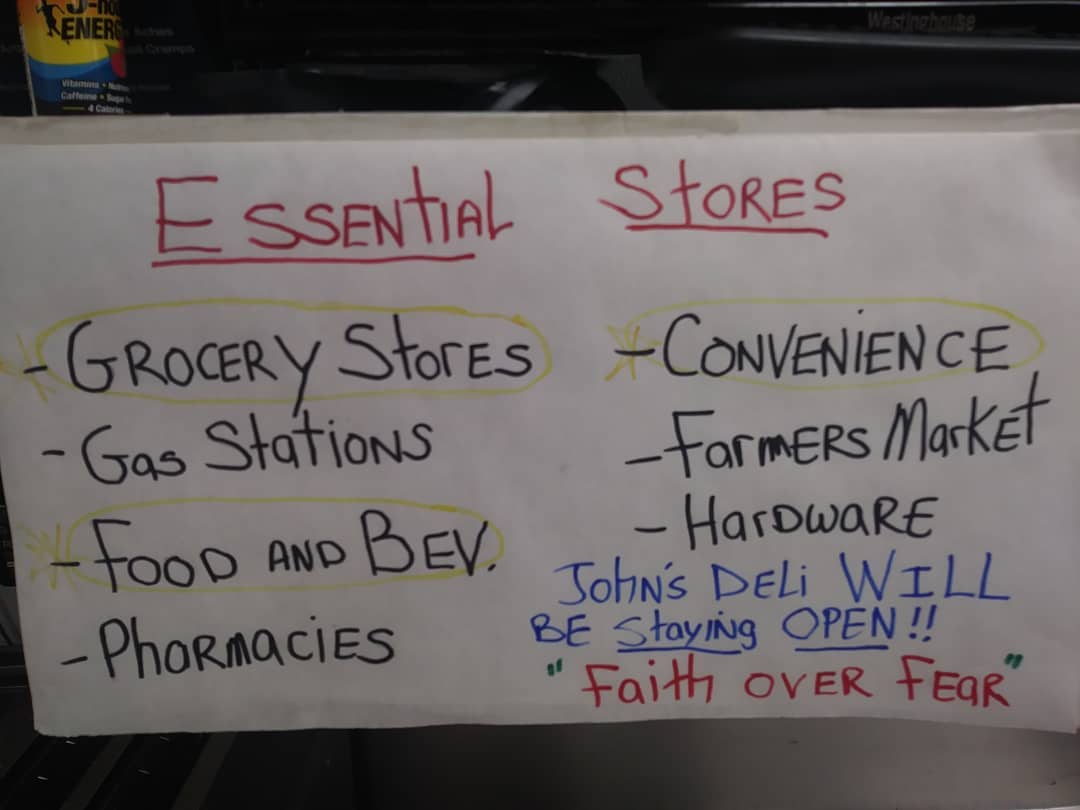 ENERG
Aches
Cramps
Vitamins •
Caffeine •
4 Calories
Westinghouse
ESSENtIAL StORES
- GROCERY StorES
- Gas StatioNS
- FOOD AND BEV.
- PhaRmaciES
- CONVENiENCE
- FarmERS MarkEt
- HarDwaRE
JohN's DELi WILL
BE StayiNg OPEN!!
"Faith OVER FEaR"